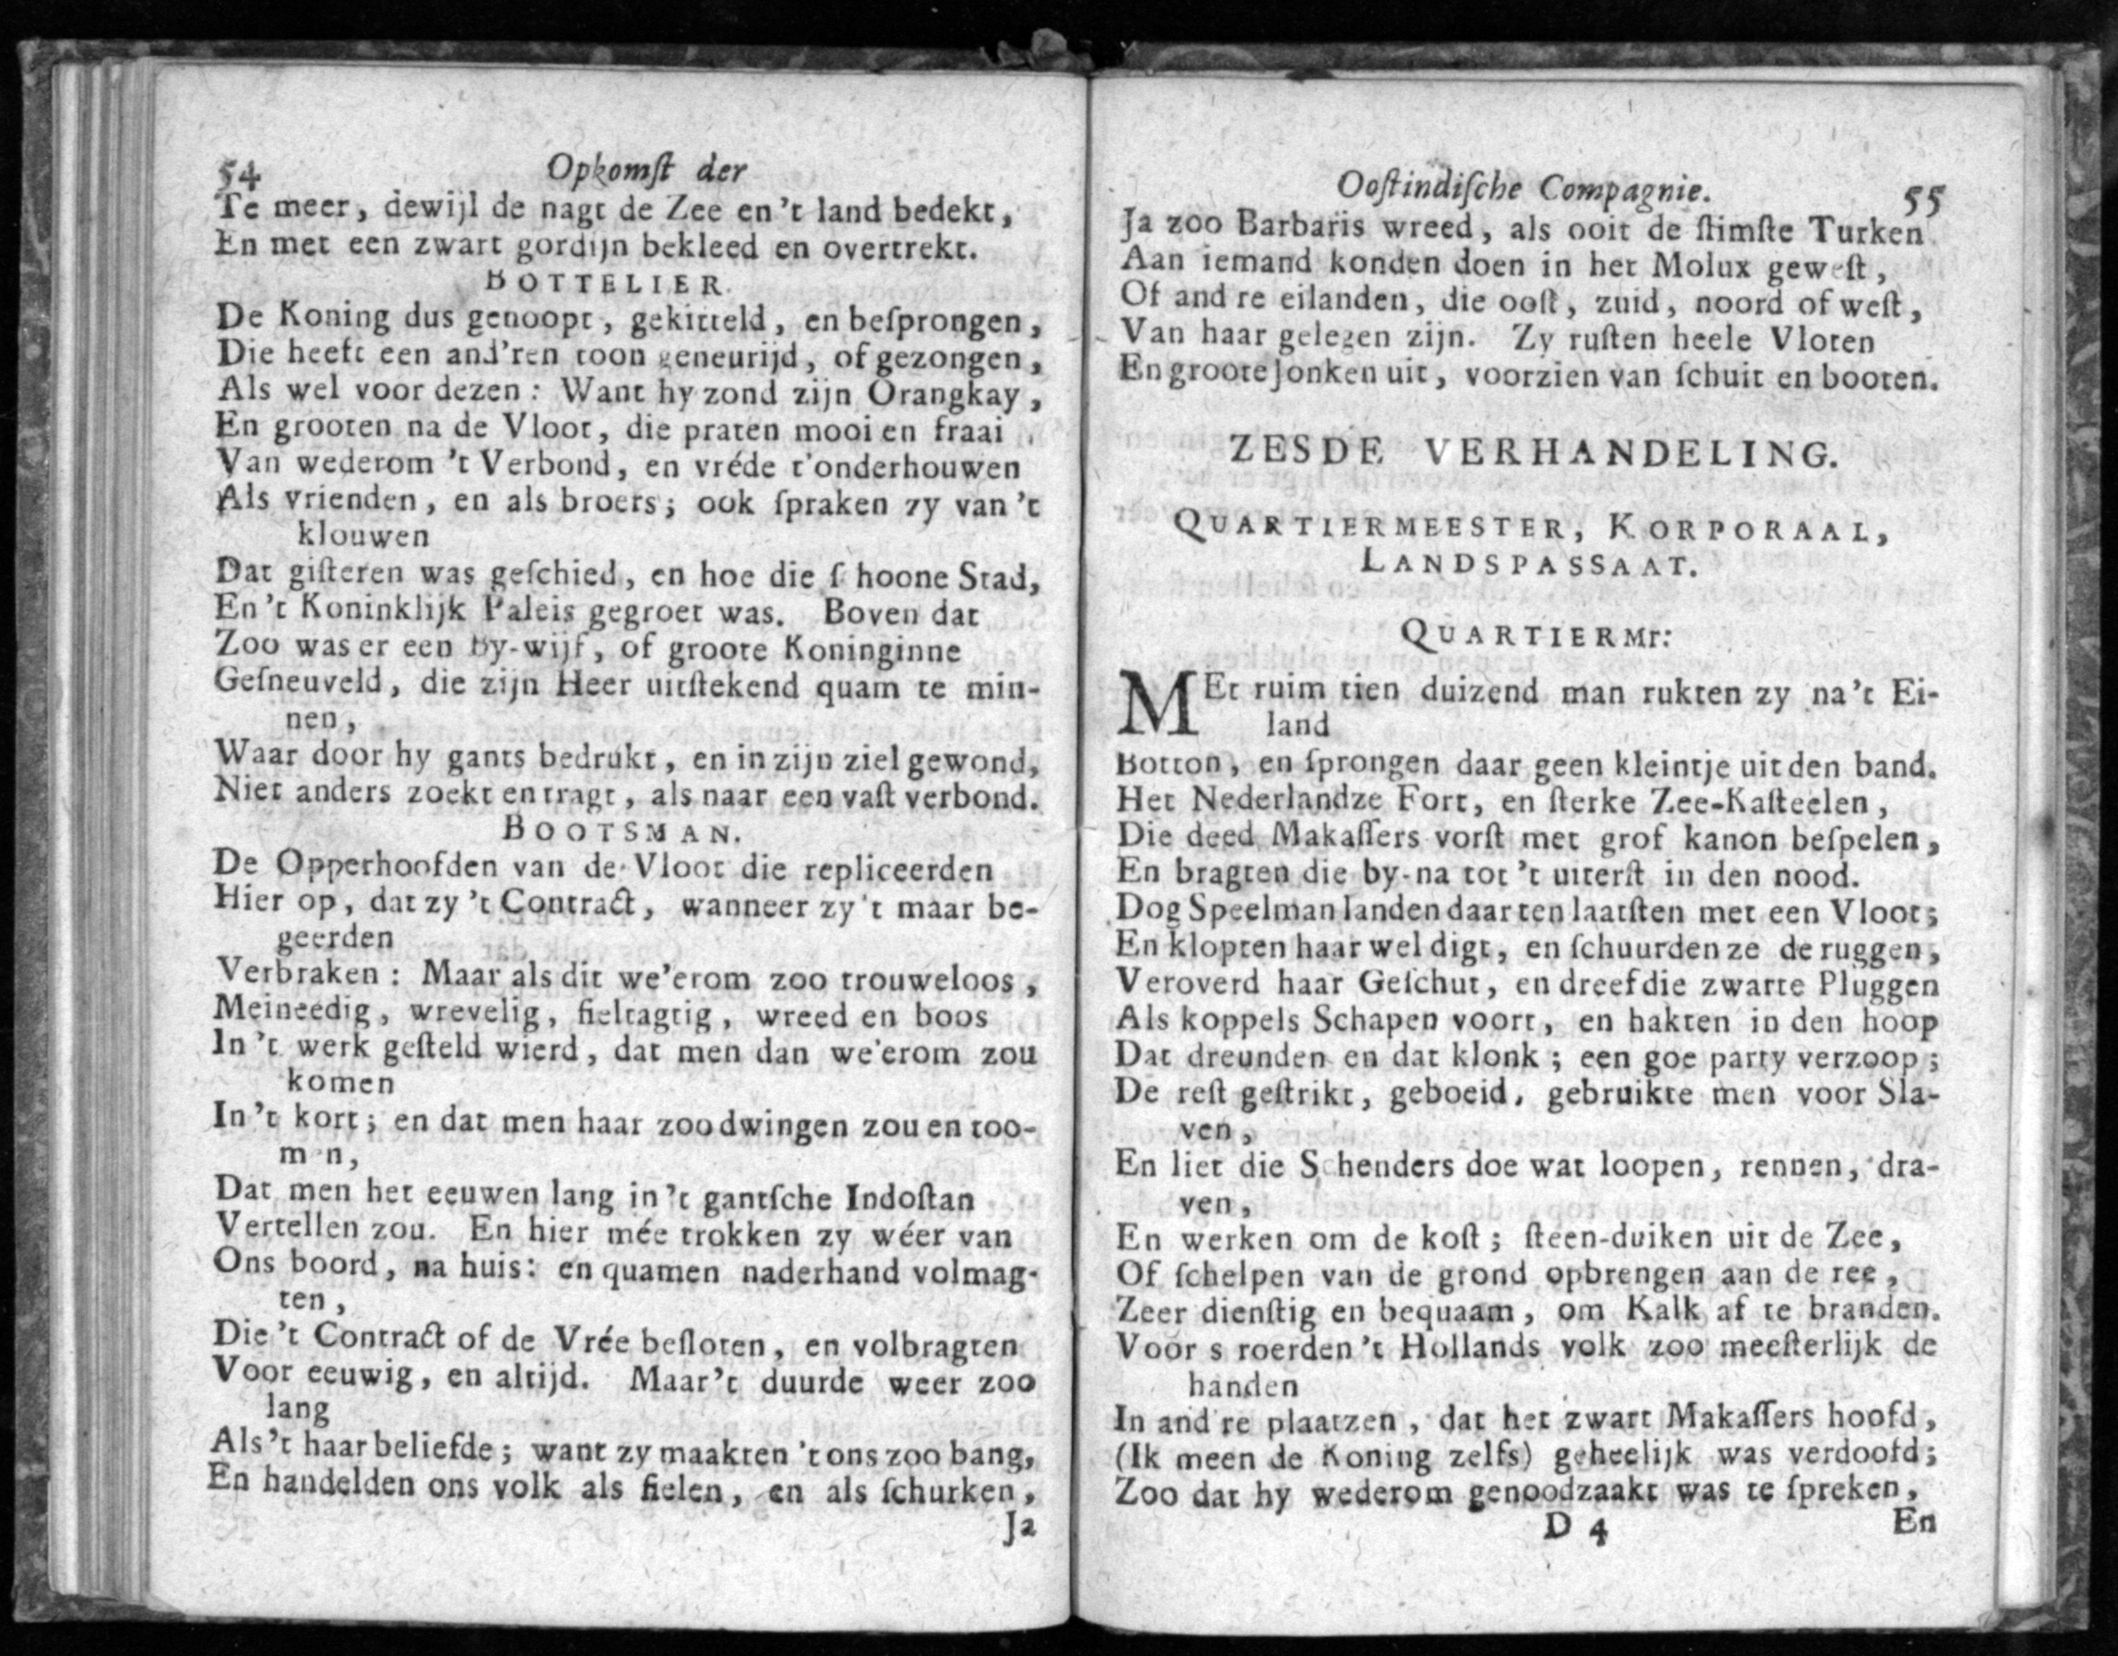 54 Opkomſt der
Te meer, dewijl de nagt de Zee en 't land bedekt,
En met een zwart gordijn bekleed en overtrekt.
BOTTELIER.
De Koning dus genoopt, gekitteld, en beſprongen,
Die heeft een and'ren toon geneurijd, of gezongen,
Als wel voor dezen: Want hy zond zijn Orangkay,
En grooten na de Vloot, die praten mooi en fraai
Van wederom 't Verbond, en vréde t'onderhouwen
Als vrienden, en als broers; ook ſpraken zy van 't
klouwen
Dat giſteren was geſchied, en hoe die ſ hoone Stad,
En 't Koninklijk Paleis gegroet was. Boven dat
Zoo was er een By-wijf, of groote Koninginne
Geſneuveld, die zijn Heer uitſtekend quam te min-
nen,
Waar door hy gants bedrukt, en in zijn ziel gewond,
Niet anders zoekt en tragt, als naar een vaſt verbond.
BOOTSMAN.
De Opperhoofden van de Vloot die repliceerden
Hier op, dat zy 't Contract, wanneer zy 't maar be-
geerden
Verbraken: Maar als dit we'erom zoo trouweloos,
Meineedig, wrevelig, fieltagtig, wreed en boos
In 't werk geſteld wierd, dat men dan we'erom zou
komen
In 't kort; en dat men haar zoo dwingen zou en too-
m n,
Dat men het eeuwen lang in 't gantſche Indoſtan
Vertellen zou. En hier mée trokken zy wéer van
Ons boord, na huis: en quamen naderhand volmag-
ten,
Die 't Contract of de Vrée beſloten, en volbragten
Voor eeuwig, en altijd. Maar 't duurde weer zoo
lang
Als 't haar beliefde; want zy maakten 't ons zoo bang,
En handelden ons volk als fielen, en als ſchurken,
Ja
Ooſtindiſche Compagnie. 55
Ja zoo Barbaris wreed, als ooit de ſlimſte Turken
Aan iemand konden doen in het Molux geweſt,
Of and re eilanden, die ooſt, zuid, noord of weſt,
Van haar gelegen zijn. Zy ruſten heele Vloten
En groote Jonken uit, voorzien van ſchuit en booten.
ZESDE VERHANDELING.
QUARTIERMEESTER, KORPORAAL,
LANDSPASSAAT.
QUARTIERMr:
MEt ruim tien duizend man rukten zy na 't Ei-
land
Botton, en ſprongen daar geen kleintje uit den band.
Het Nederlandze Fort, en ſterke Zee-Kaſteelen,
Die deed Makaſſers vorſt met grof kanon beſpelen,
En bragten die by-na tot 't uiterſt in den nood.
Dog Speelman landen daar ten laatſten met een Vloot;
En klopten haar wel digt, en ſchuurden ze de ruggen,
Veroverd haar Geſchut, en dreef die zwarte Pluggen
Als koppels Schapen voort, en hakten in den hoop
Dat dreunden en dat klonk; een goe party verzoop;
De reſt geſtrikt, geboeid, gebruikte men voor Sla-
ven,
En liet die Schenders doe wat loopen, rennen, dra-
ven,
En werken om de koſt; ſteen-duiken uit de Zee,
Of ſchelpen van de grond opbrengen aan de ree,
Zeer dienſtig en bequaam, om Kalk af te branden.
Voor s roerden 't Hollands volk zoo meeſterlijk de
handen
In and re plaatzen, dat het zwart Makaſſers hoofd,
(Ik meen de Koning zelfs) geheelijk was verdoofd;
Zoo dat hy wederom genoodzaakt was te ſpreken,
D 4 En